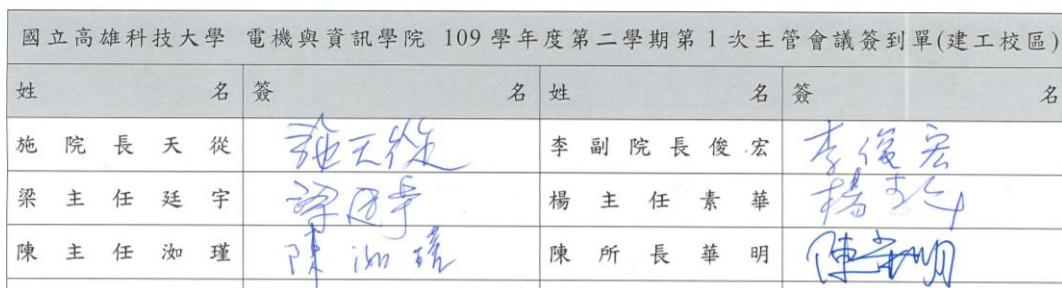 國立高雄科技大學 電機與資訊學院 109 學年度第二學期第 1 次主管會議簽到單(建工校區)
姓 名 簽 名 姓 名 簽 名
施院長天從 施天從 李副院長俊宏 李俊宏
梁主任廷宇 梁廷宇 楊主任素華 楊素華
陳主任洳瑾 陳洳瑾 陳所長華明 陳華明